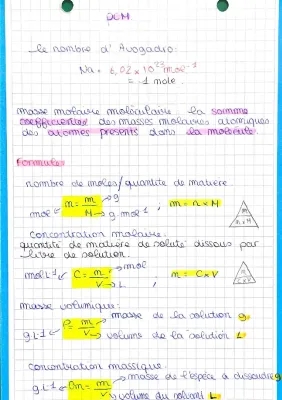 le nombre d'Avogadro:
Na = 6,02 x 10²³ mol⁻¹
= 1 mole
masse molaire moléculaire: la somme
coefficientée des masses molaires atomiques
des atomes présents dans la molécule
Formule
nombre de moles/quantité de matière:
n = m g , m = n x M
mol M g.mol⁻¹ m n x M
concentration molaire:
quantité de matière de soluté dissous par
litre de solution.
mol.L⁻¹ C = n mol , n = C x V
V L n C x V
masse volumique:
ρ = m masse de la solution g
g.L⁻¹ V volume de la solution L
concentration massique:
Cm = m masse de l'espèce à dissoudre g
g.L⁻¹ V volume du solvant L